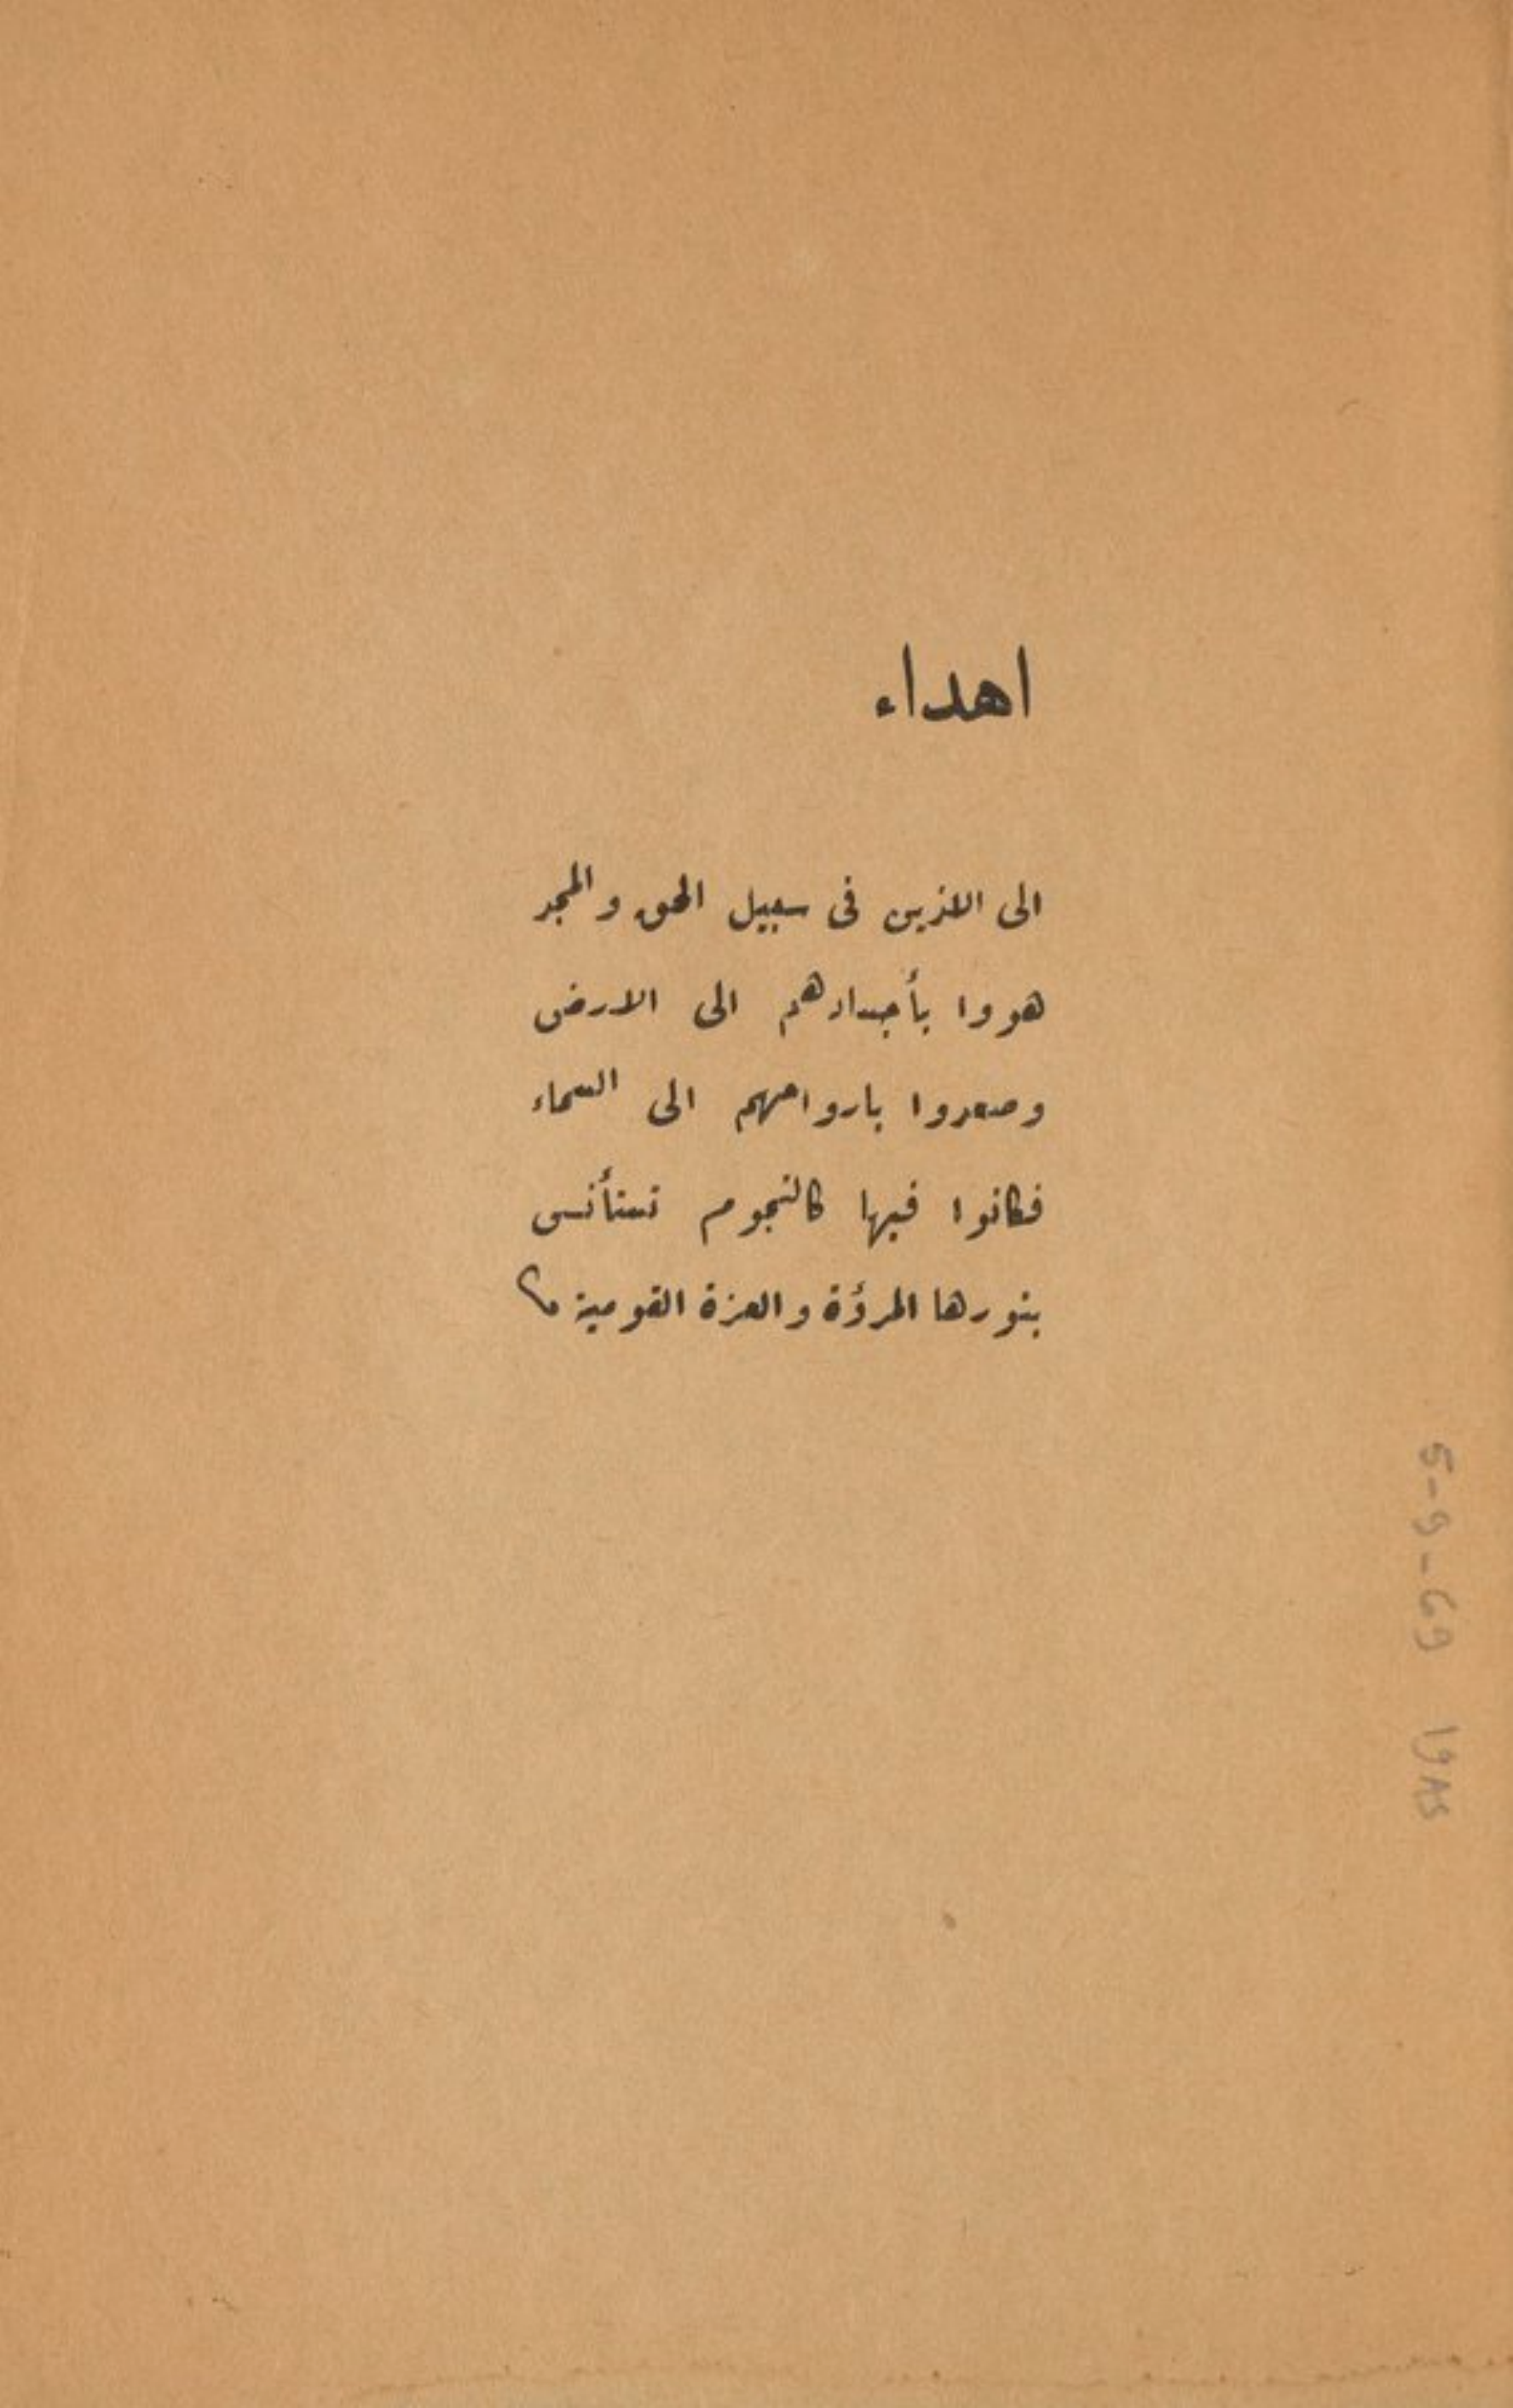 اهداء
الى الذين فى سبيل الحق والمجد
هووا بأجسادهم الى الارض
وصعدوا بارواحهم الى السماء
فكانوا فيها كالنجوم تستأنس
بنورها المرؤة والعزة القومية
5-9-69 19AS